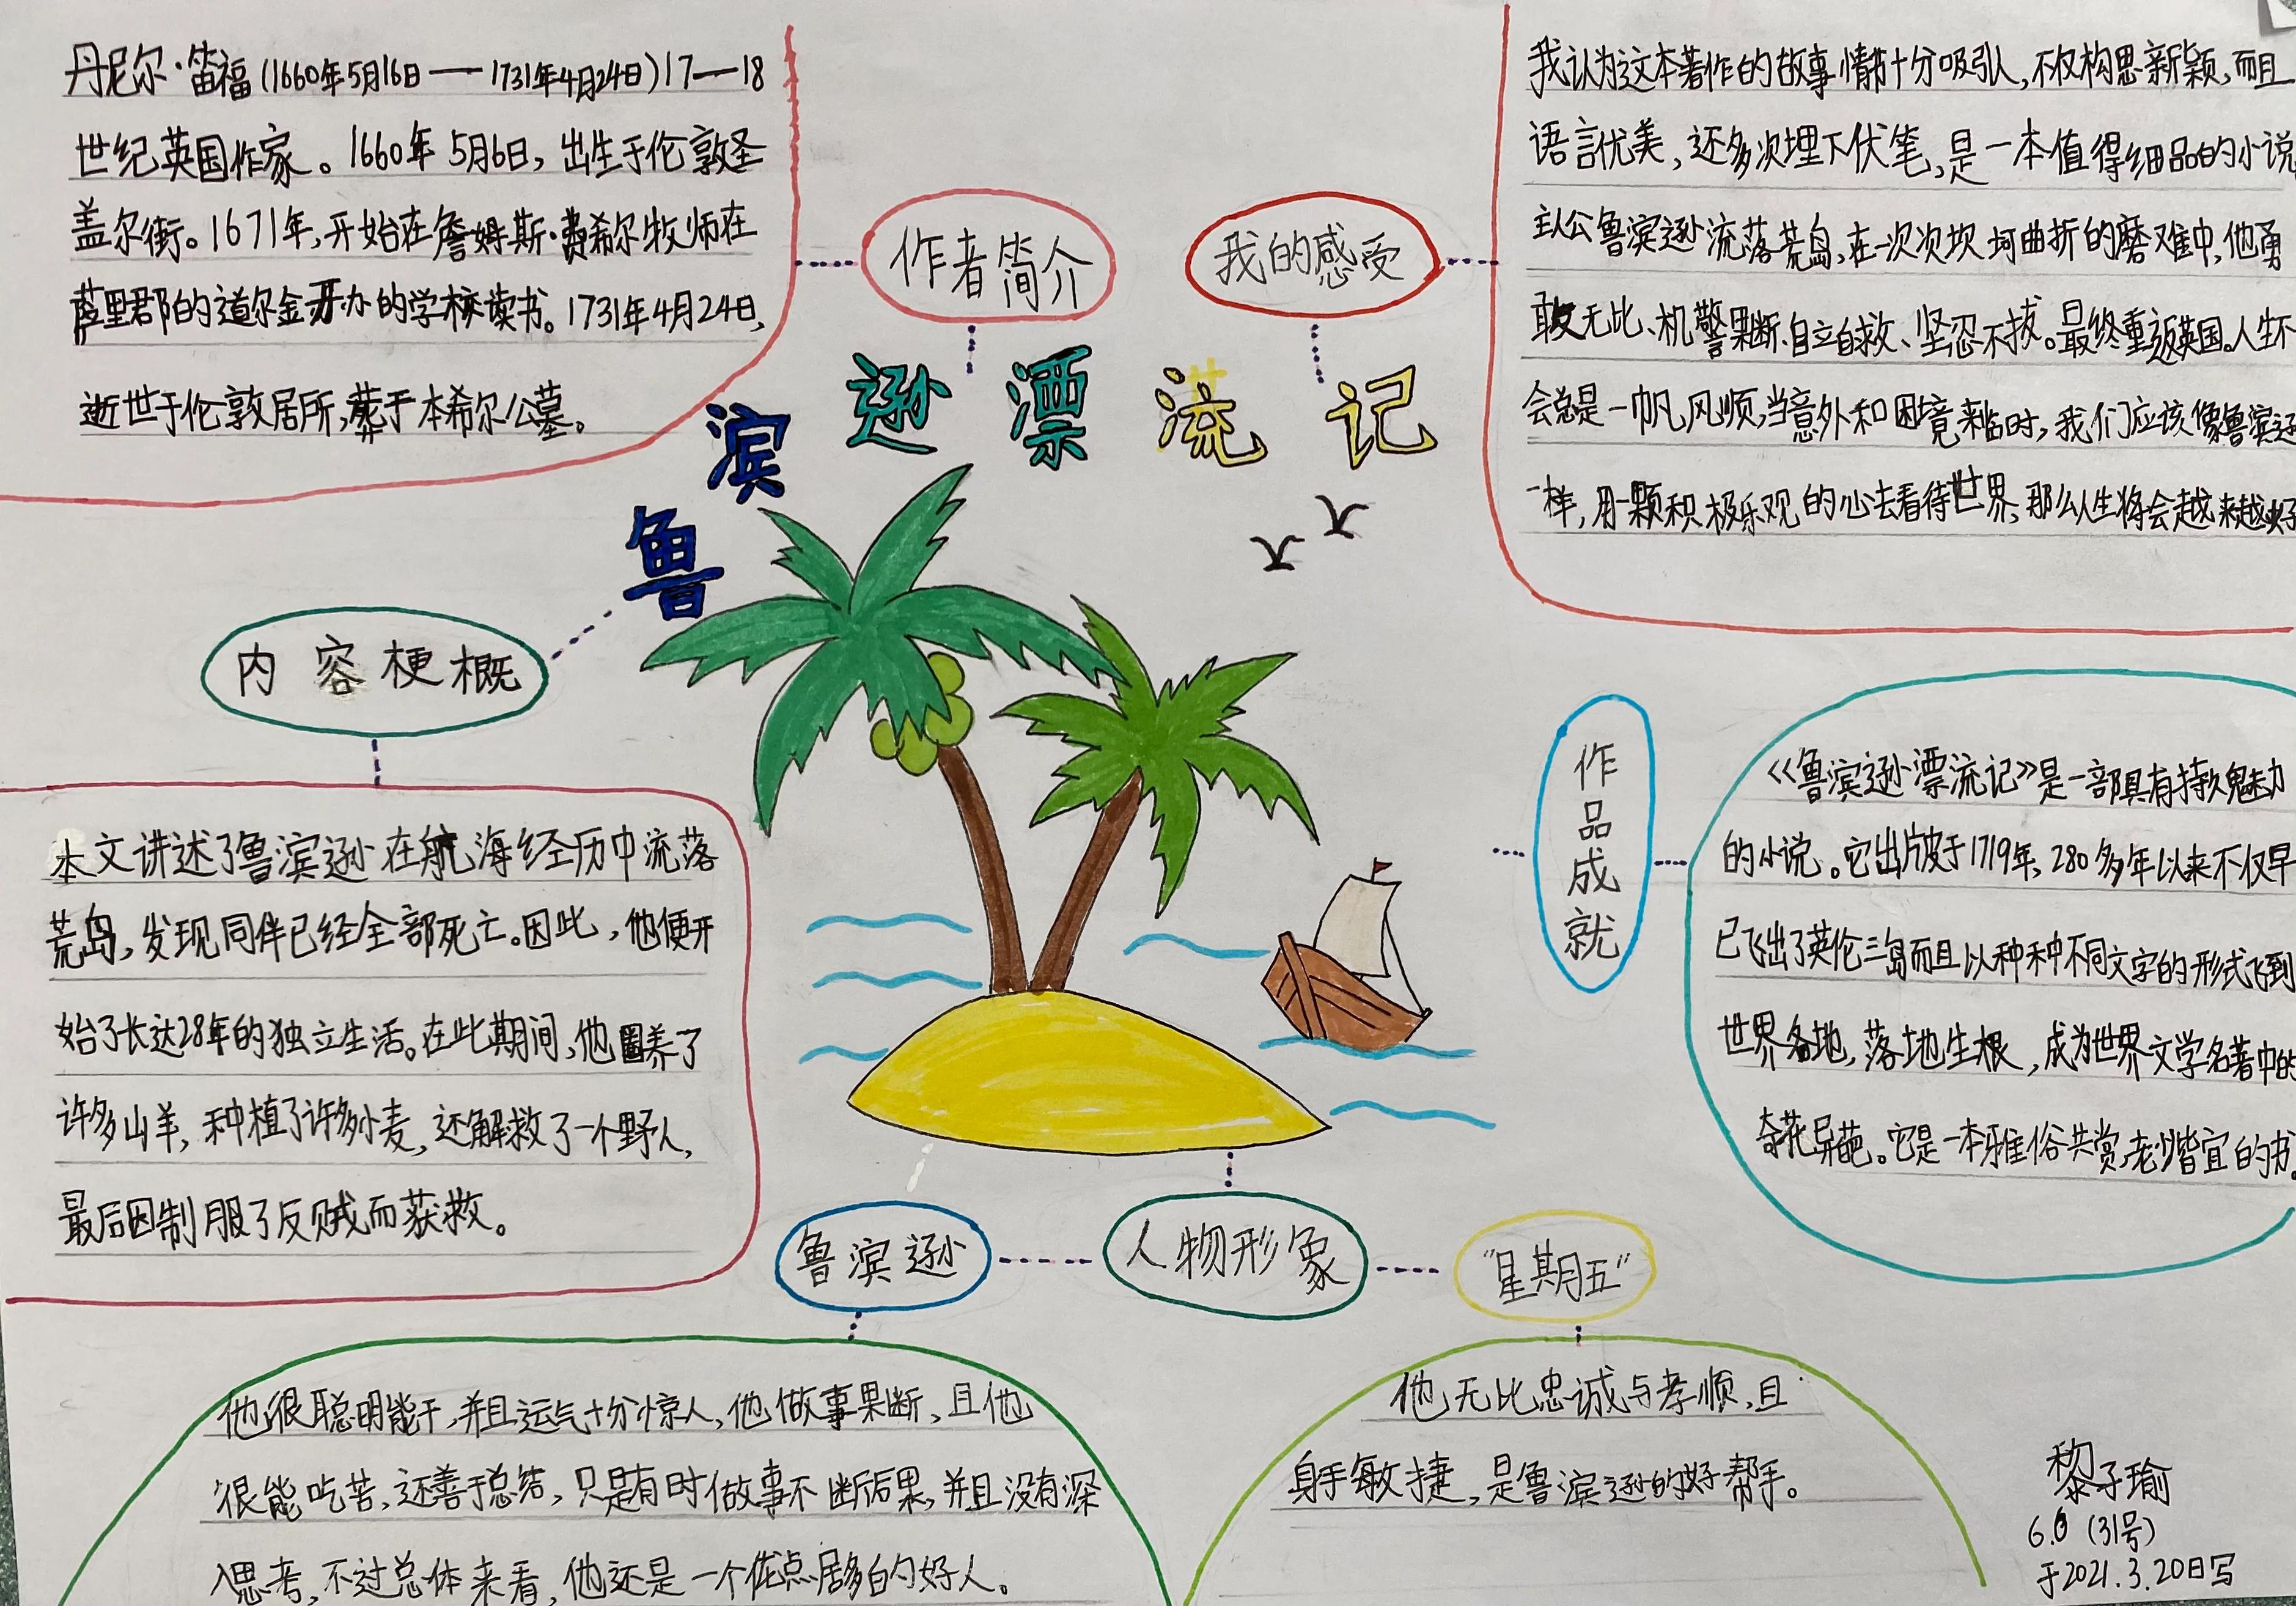 丹尼尔·笛福(1660年5月16日——1731年4月24日)17—18
世纪英国作家。1660年5月6日，出生于伦敦圣
盖尔街。1671年，开始在詹姆斯·费希尔牧师在
萨里郡的道尔金开办的学校读书。1731年4月24日，
逝世于伦敦居所，葬于本希尔公墓。
作者简介
我的感受
我认为这本著作的故事情节十分吸引人，不仅构思新颖，而且
语言优美，还多次埋下伏笔，是一本值得细品的小说
主人公鲁滨逊流落荒岛，在一次次坎坷曲折的磨难中，他勇
敢无比、机警果断、自立自救、坚忍不拔。最终重返英国。人生不
会总是一帆风顺，当意外和困境来临时，我们应该像鲁滨逊
一样，用一颗积极乐观的心去看待世界，那么人生将会越来越好
鲁滨逊漂流记
内容梗概
本文讲述了鲁滨逊在航海经历中流落
荒岛，发现同伴已经全部死亡。因此，他便开
始了长达28年的独立生活。在此期间，他圈养了
许多山羊，种植了许多小麦，还解救了一个野人，
最后因制服了反贼而获救。
作品成就
《鲁滨逊漂流记》是一部具有持久魅力
的小说。它出版于1719年，280多年以来不仅早
已飞出了英伦三岛而且以种种不同文字的形式飞到
世界各地，落地生根，成为世界文学名著中的
奇花异葩。它是一本雅俗共赏，老少皆宜的书。
鲁滨逊
人物形象
"星期五"
他很聪明能干，并且运气十分惊人，他做事果断，且他
很能吃苦，还善于总结，只是有时做事不断后果，并且没有深
入思考，不过总体来看，他还是一个优点居多的好人。
他无比忠诚与孝顺，且
身手敏捷，是鲁滨逊的好帮手。
黎子瑜
(31号)
于2021.3.20日写